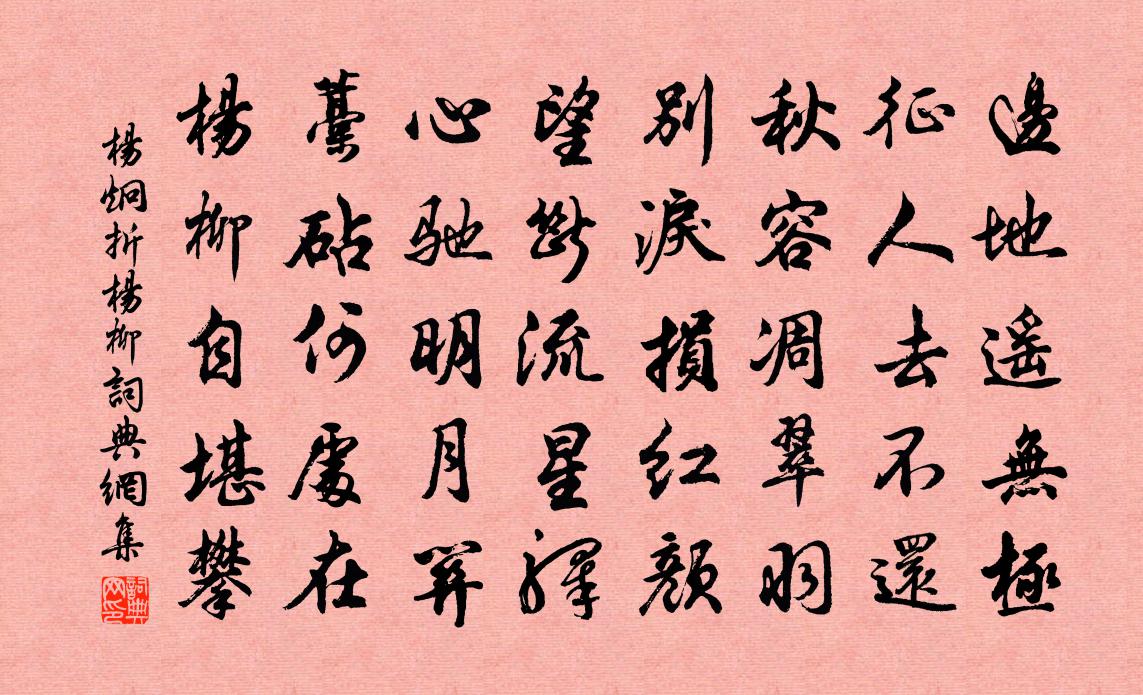 邊地遙無極
征人去不還
秋容凋翠羽
別淚損紅顏
望斷流星驛
心馳明月關
藁砧何處在
楊柳自堪攀
楊炯折楊柳詞典網集
詞典网印